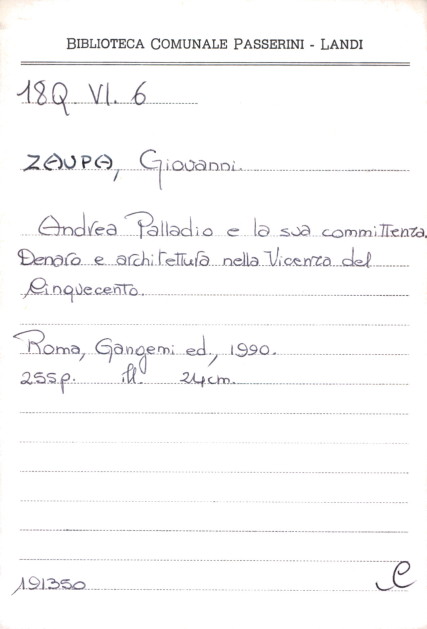 BIBLIOTECA COMUNALE PASSERINI - LANDI
18Q VI. 6
ZAUPA, Giovanni.
Andrea Palladio e la sua committenza.
Denaro e architettura nella Vicenza del
Cinquecento.
Roma, Gangemi ed., 1990.
255p. ill. 24cm.
191350
C